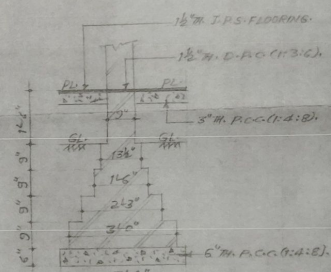 1½" TH. I.P.S. FLOORING.
1½" TH. D.P.C. (1:3:6).
PL PL
3" TH. P.C.C. (1:4:8).
1'-6"
9"
GL. GL.
13½"
9"
1'-6"
9"
2'-3"
9"
3'-0"
6"
6" TH. P.C.C. (1:4:8).